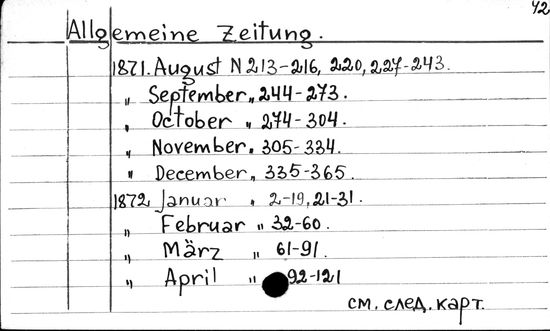 42
Allgemeine Zeitung.
1871. August N 213-216, 220, 227-243.
„ September „ 244-273.
„ October „ 274-304.
„ November „ 305-334.
„ December „ 335-365.
1872 Januar „ 2-19, 21-31.
„ Februar „ 32-60.
„ März „ 61-91.
„ April „ 92-121
см. след. карт.